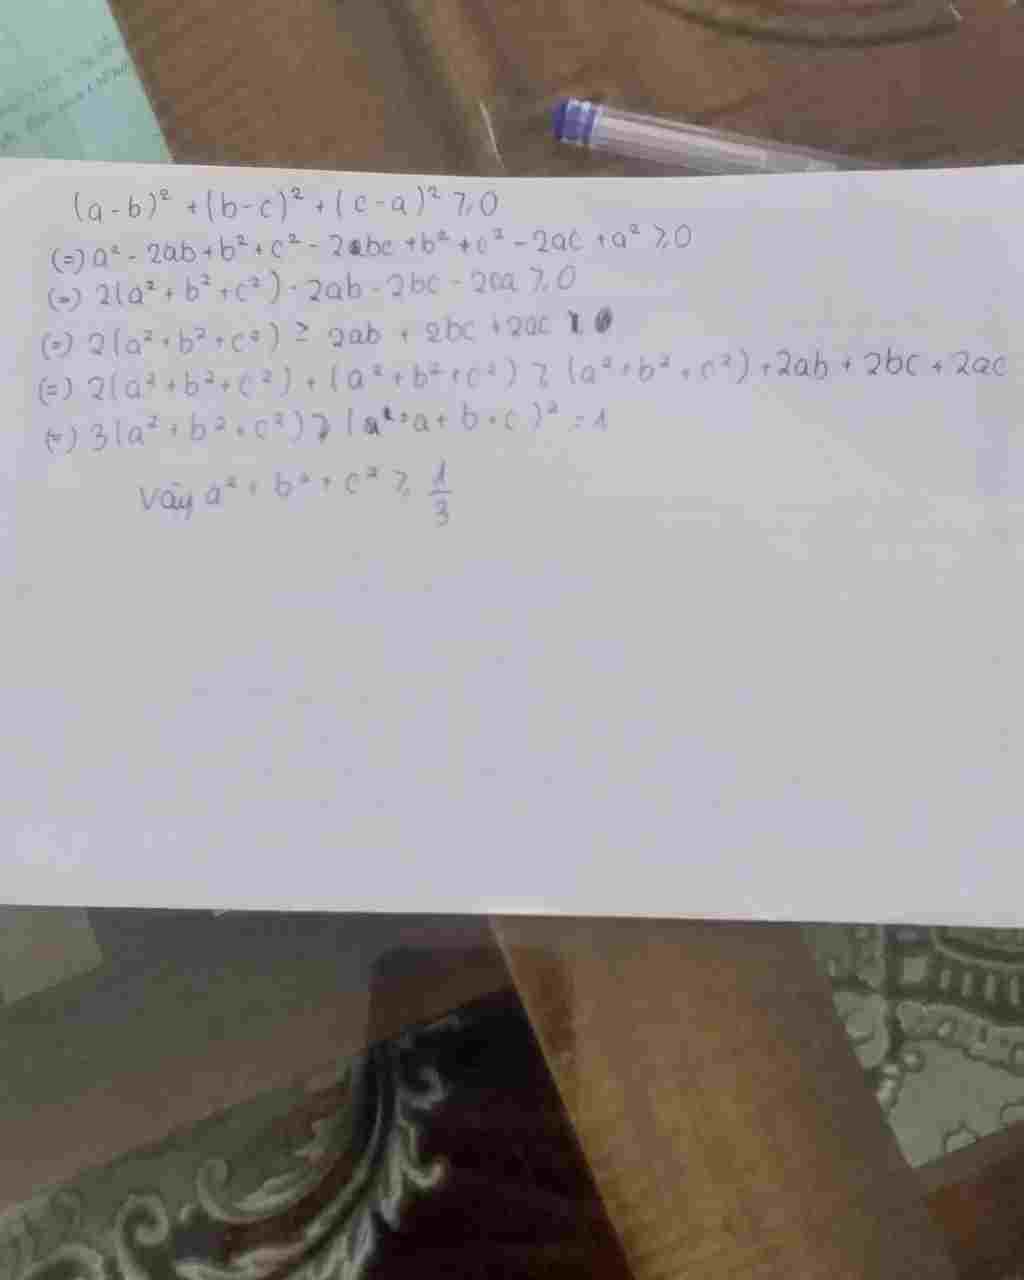 (a-b)² + (b-c)² + (c-a)² ≥ 0
(=) a² - 2ab + b² + c² - 2bc + b² + c² - 2ac + a² ≥ 0
(=) 2(a² + b² + c²) - 2ab - 2bc - 2ca ≥ 0
(=) 2(a² + b² + c²) ≥ 2ab + 2bc + 2ac
(=) 2(a² + b² + c²) + (a² + b² + c²) ≥ (a² + b² + c²) + 2ab + 2bc + 2ac
(=) 3(a² + b² + c²) ≥ (a + b + c)² = 1
Vậy a² + b² + c² ≥ 1/3